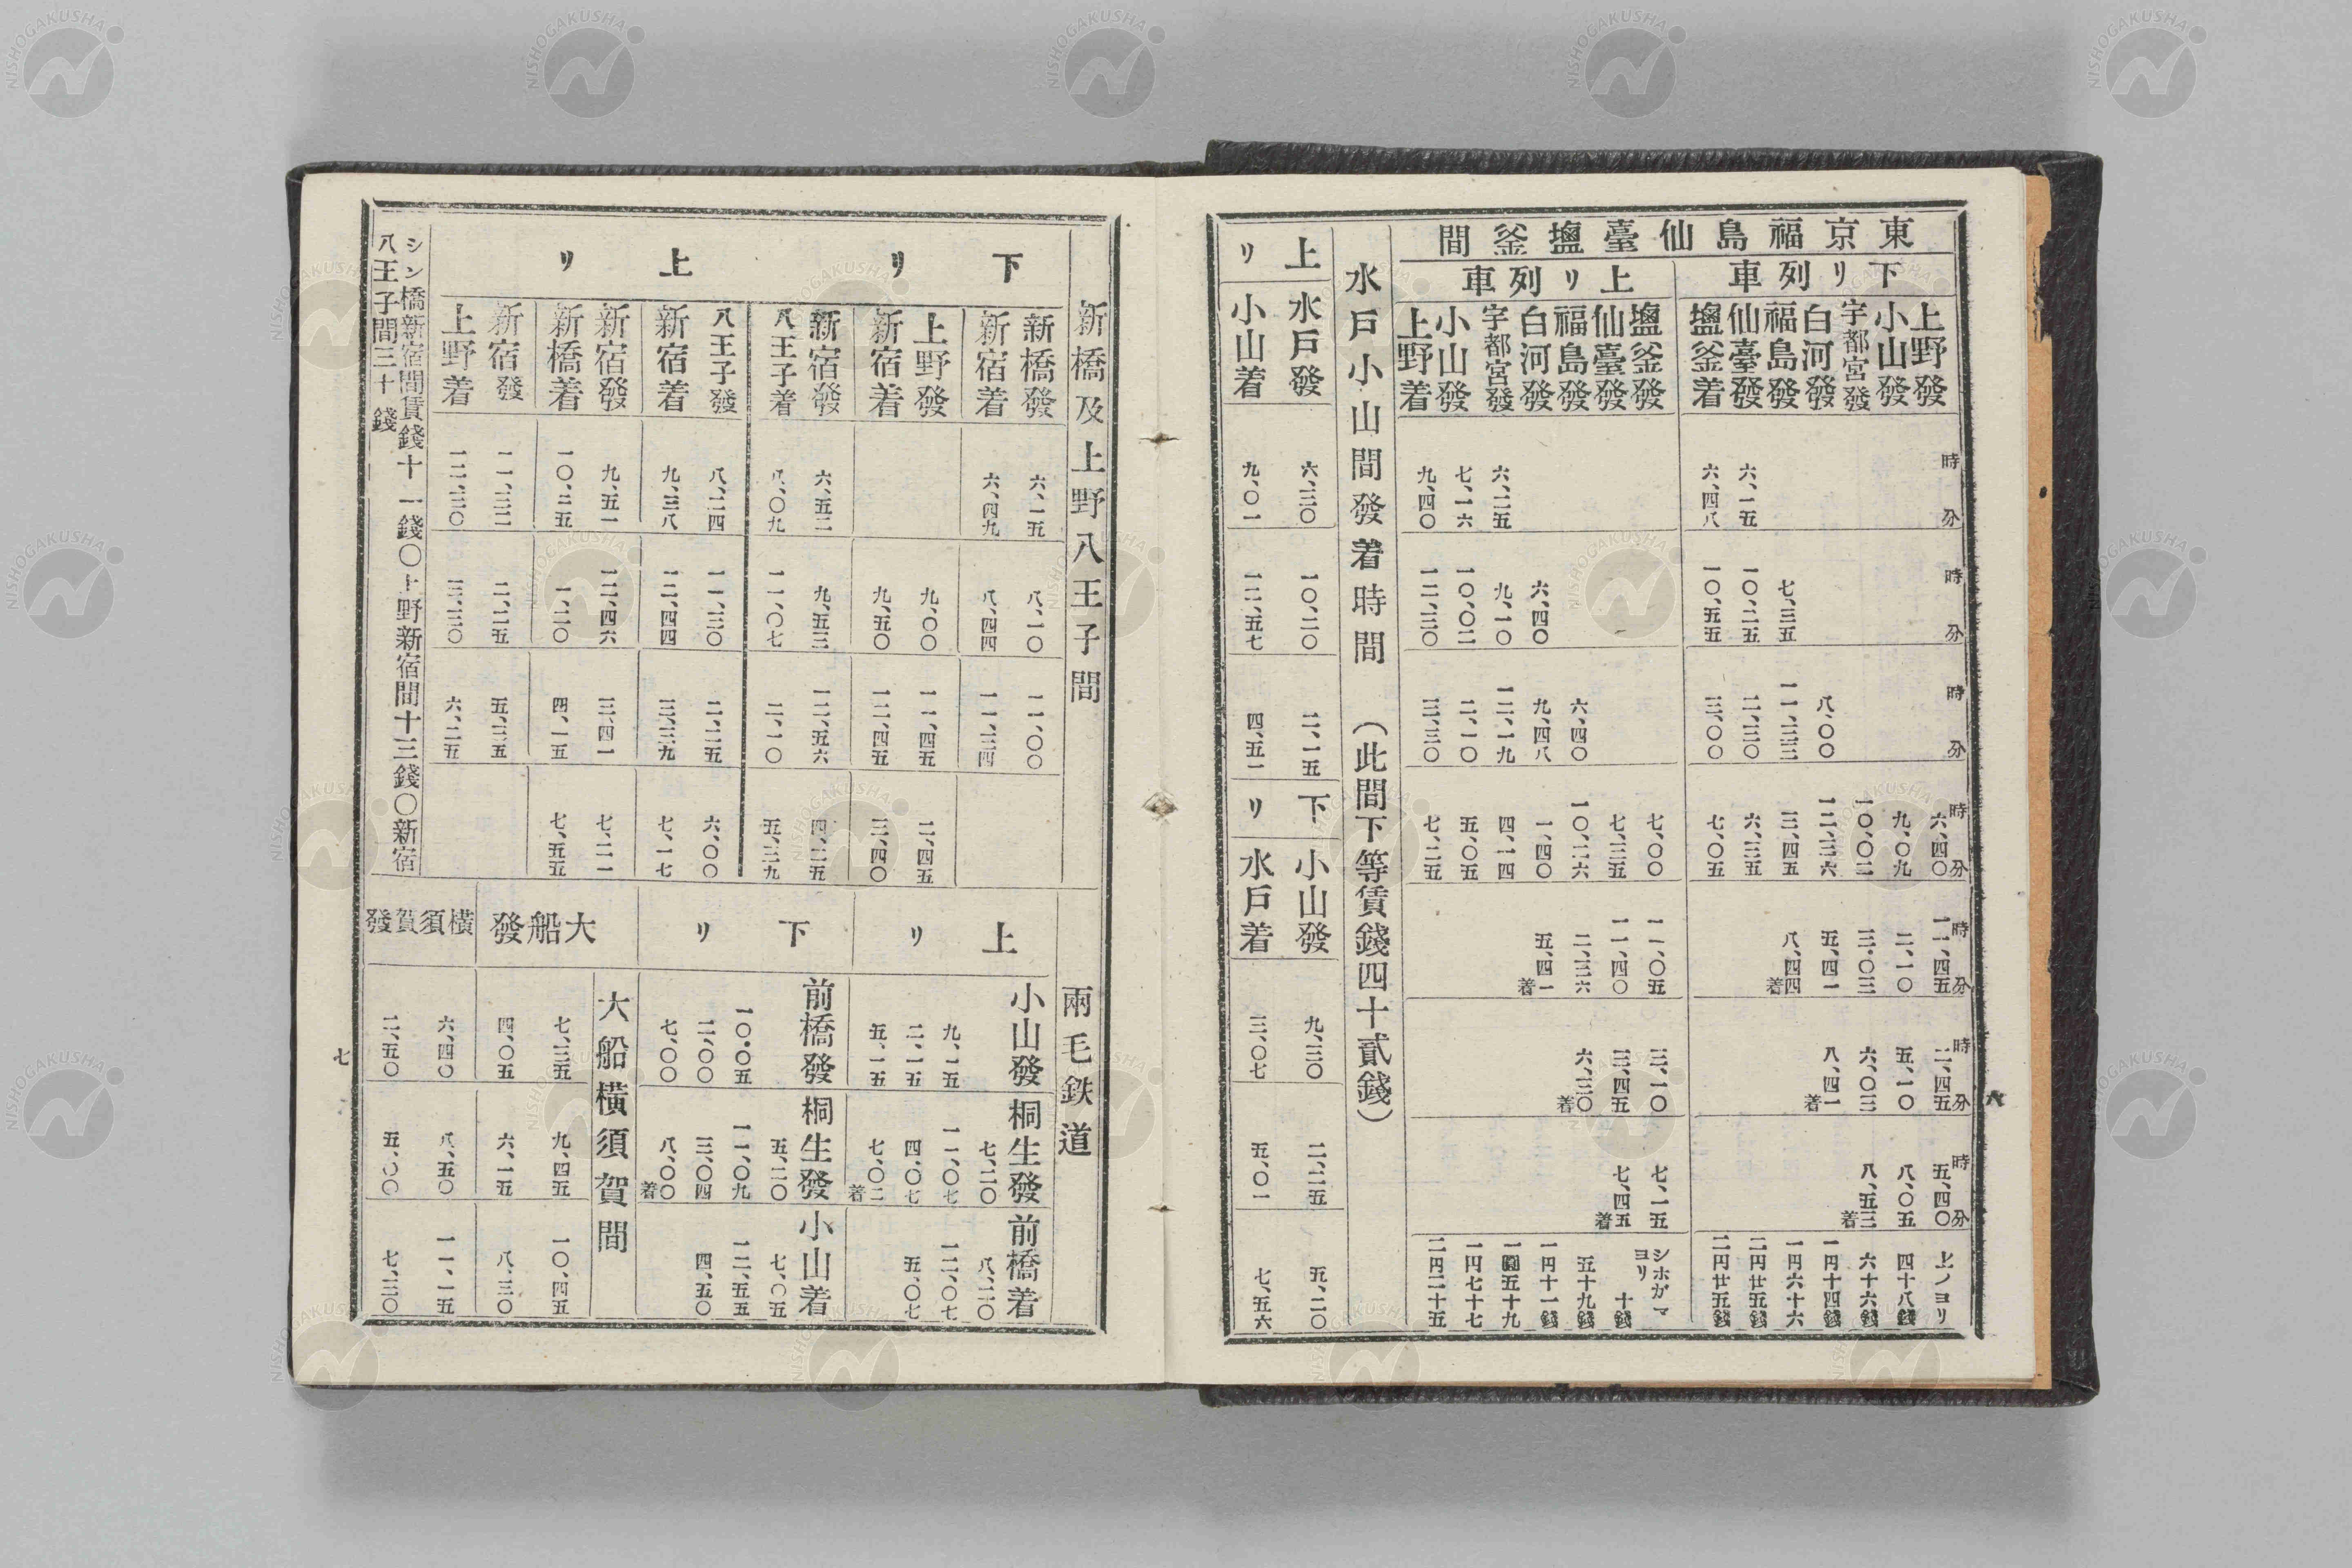 東京福島仙臺鹽釜間
下リ列車
時分 時分 時分 時分 時分 時分 時分
上野發 六、四〇 一一、四五 二、四五 五、四〇 上ノヨリ
小山發 九、〇九 二、一〇 五、一〇 八、〇五 四十八錢
宇都宮發 一〇、〇二 三、〇三 六、〇三 八、五三着 六十六錢
白河發 八、〇〇 一二、三六 五、四一 八、四一着 一円十四錢
福島發 七、三五 一一、三三 三、四五 八、四四着 一円六十六
仙臺發 六、一五 一〇、二五 二、三〇 六、三五 二円廿五錢
鹽釜着 六、四八 一〇、五五 三、〇〇 七、〇五 二円廿五錢
上リ列車
鹽釜發 七、〇〇 一一、〇五 三、一〇 七、一五 シホガマヨリ
仙臺發 七、三五 一一、四〇 三、四五 七、四五着 十錢
福島發 六、四〇 一〇、二六 二、三六 六、三〇着 五十九錢
白河發 六、四〇 九、四八 一、四〇 五、四一着 一円十一錢
宇都宮發 六、二五 九、一〇 一二、一九 四、一四 一圓五十九
小山發 七、一六 一〇、〇二 二、一〇 五、〇五 一円七十七
上野着 九、四〇 一二、三〇 三、三〇 七、二五 二円二十五
水戸小山間發着時間 (此間下等賃錢四十貳錢)
上リ
水戸發 六、三〇 一〇、二〇 二、一五
小山着 九、〇一 一二、五七 四、五一
下リ
小山發 九、三〇 二、二五 五、二〇
水戸着 三、〇七 五、〇一 七、五六
六
新橋及上野八王子間
下リ
新橋發 六、一五 八、一〇 一一、〇〇
新宿着 六、四九 八、四四 一一、三四
上野發 九、〇〇 一一、四五 二、四五
新宿着 九、五〇 一二、四五 三、四〇
新宿發 六、五二 九、五三 一二、五六 四、二五
八王子着 八、〇九 一一、〇七 二、一〇 五、三九
上リ
八王子發 八、二四 一一、三〇 二、二五 六、〇〇
新宿着 九、三八 一二、四四 三、三九 七、一七
新宿發 九、五一 一二、四六 三、四一 七、二一
新橋着 一〇、二五 一、二〇 四、一五 七、五五
新宿發 一一、三二 二、二五 五、三五
上野着 一二、三〇 三、三〇 六、二五
シン橋新宿間賃錢十一錢〇上野新宿間十三錢〇新宿
八王子間三十錢
兩毛鉄道
上リ
小山發 九、一五 二、一五 五、一五
桐生發 七、二〇 一一、〇七 四、〇七 七、〇二着
前橋着 八、二〇 一二、〇七 五、〇七
下リ
前橋發 一〇、〇五 二、〇〇 七、〇〇
桐生發 五、二〇 一一、〇九 三、〇四 八、〇〇着
小山着 七、〇五 一二、五五 四、五〇
大船横須賀間
大船發
七、三五 九、四五 一〇、四五
四、〇五 六、一五 八、三〇
横須賀發
六、四〇 八、五〇 一一、一五
二、五〇 五、〇〇 七、三〇
七
NISHOGAKUSHA